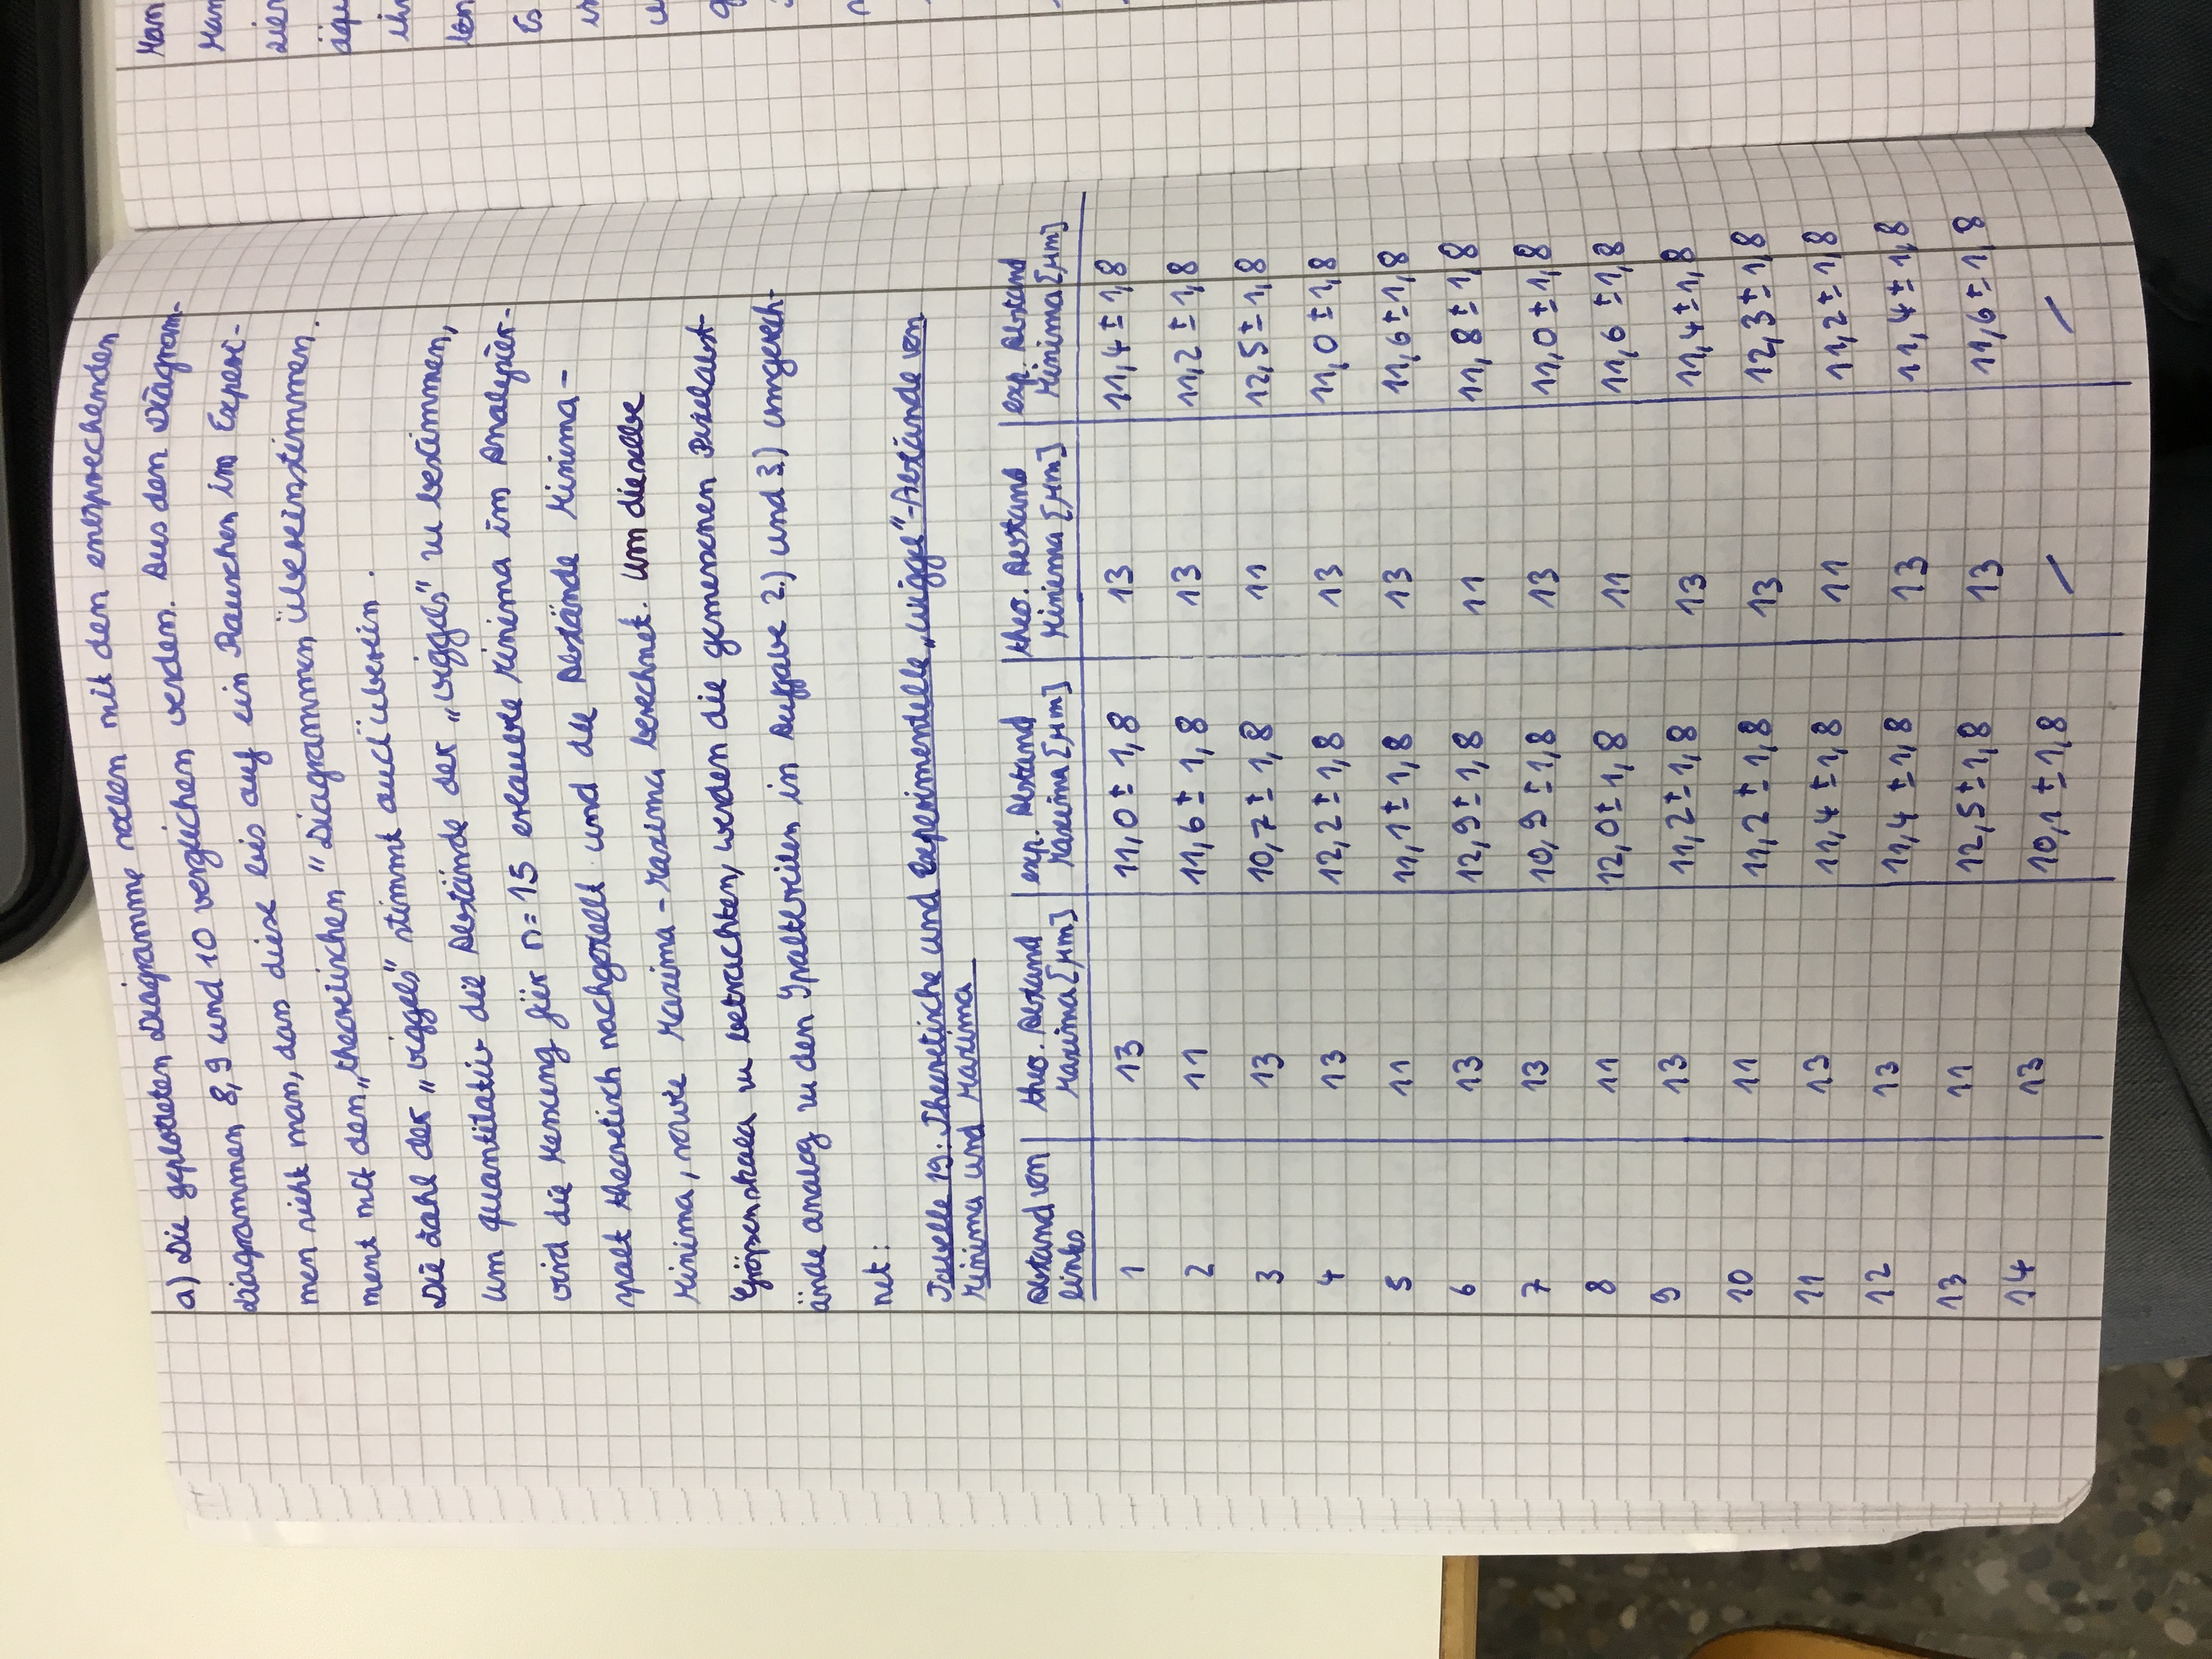 a) Die geplotteten Diagramme sollen mit den entsprechenden
Diagrammen 8, 9 und 10 verglichen werden. Aus den Diagram-
men sieht man, dass diese bis auf ein Rauschen im Experi-
ment mit den „theoretischen" Diagrammen übereinstimmen.
Die Zahl der „wiggels" stimmt auch überein.
Um quantitativ die Abstände der „wiggels" zu bestimmen,
wird die Messung für n=15 erlaubte Minima im Analysier-
spalt theoretisch nachgestellt und die Abstände Minima-
Minima, sowie Maxima-Maxima berechnet. Um dieselbe
Größenskala zu betrachten, werden die gemessenen Pixelabst-
ände analog zu den Spaltbreiten in Aufgabe 2.) und 3.) umgerech-
net:
Tabelle 19: Theoretische und Experimentelle „Wiggel"-Abstände von
Minima und Maxima
Abstand von links | theo. Abstand Maxima [μm] | exp. Abstand Maxima [μm] | theo. Abstand Minima [μm] | exp. Abstand Minima [μm]
1 | 13 | 11,0 ± 1,8 | 13 | 11,4 ± 1,8
2 | 11 | 11,6 ± 1,8 | 13 | 11,2 ± 1,8
3 | 13 | 10,7 ± 1,8 | 11 | 12,5 ± 1,8
4 | 13 | 12,2 ± 1,8 | 13 | 11,0 ± 1,8
5 | 11 | 11,1 ± 1,8 | 13 | 11,6 ± 1,8
6 | 13 | 12,9 ± 1,8 | 11 | 11,8 ± 1,8
7 | 13 | 10,9 ± 1,8 | 13 | 11,0 ± 1,8
8 | 11 | 12,0 ± 1,8 | 11 | 11,6 ± 1,8
9 | 13 | 11,2 ± 1,8 | 13 | 11,4 ± 1,8
10 | 11 | 11,2 ± 1,8 | 13 | 12,3 ± 1,8
11 | 13 | 11,4 ± 1,8 | 11 | 11,2 ± 1,8
12 | 13 | 11,4 ± 1,8 | 13 | 11,4 ± 1,8
13 | 11 | 12,5 ± 1,8 | 13 | 11,6 ± 1,8
14 | 13 | 10,1 ± 1,8 | / | /